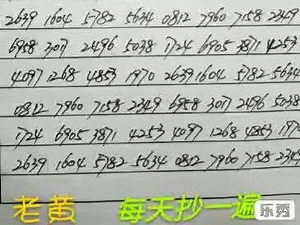 2639 1604 5782 5634 0812 7960 7158 2349
6958 3017 2496 5038 1724 6905 3871 4253
4097 1268 4853 1970 2639 1604 5782 5634
0812 7960 7158 2349 6958 3017 2496 5038
1724 6905 3871 4253 4097 1268 4853 1970
2639 1604 5782 5634 0812 7960 7158 2349
老黄 每天抄一遍
乐秀